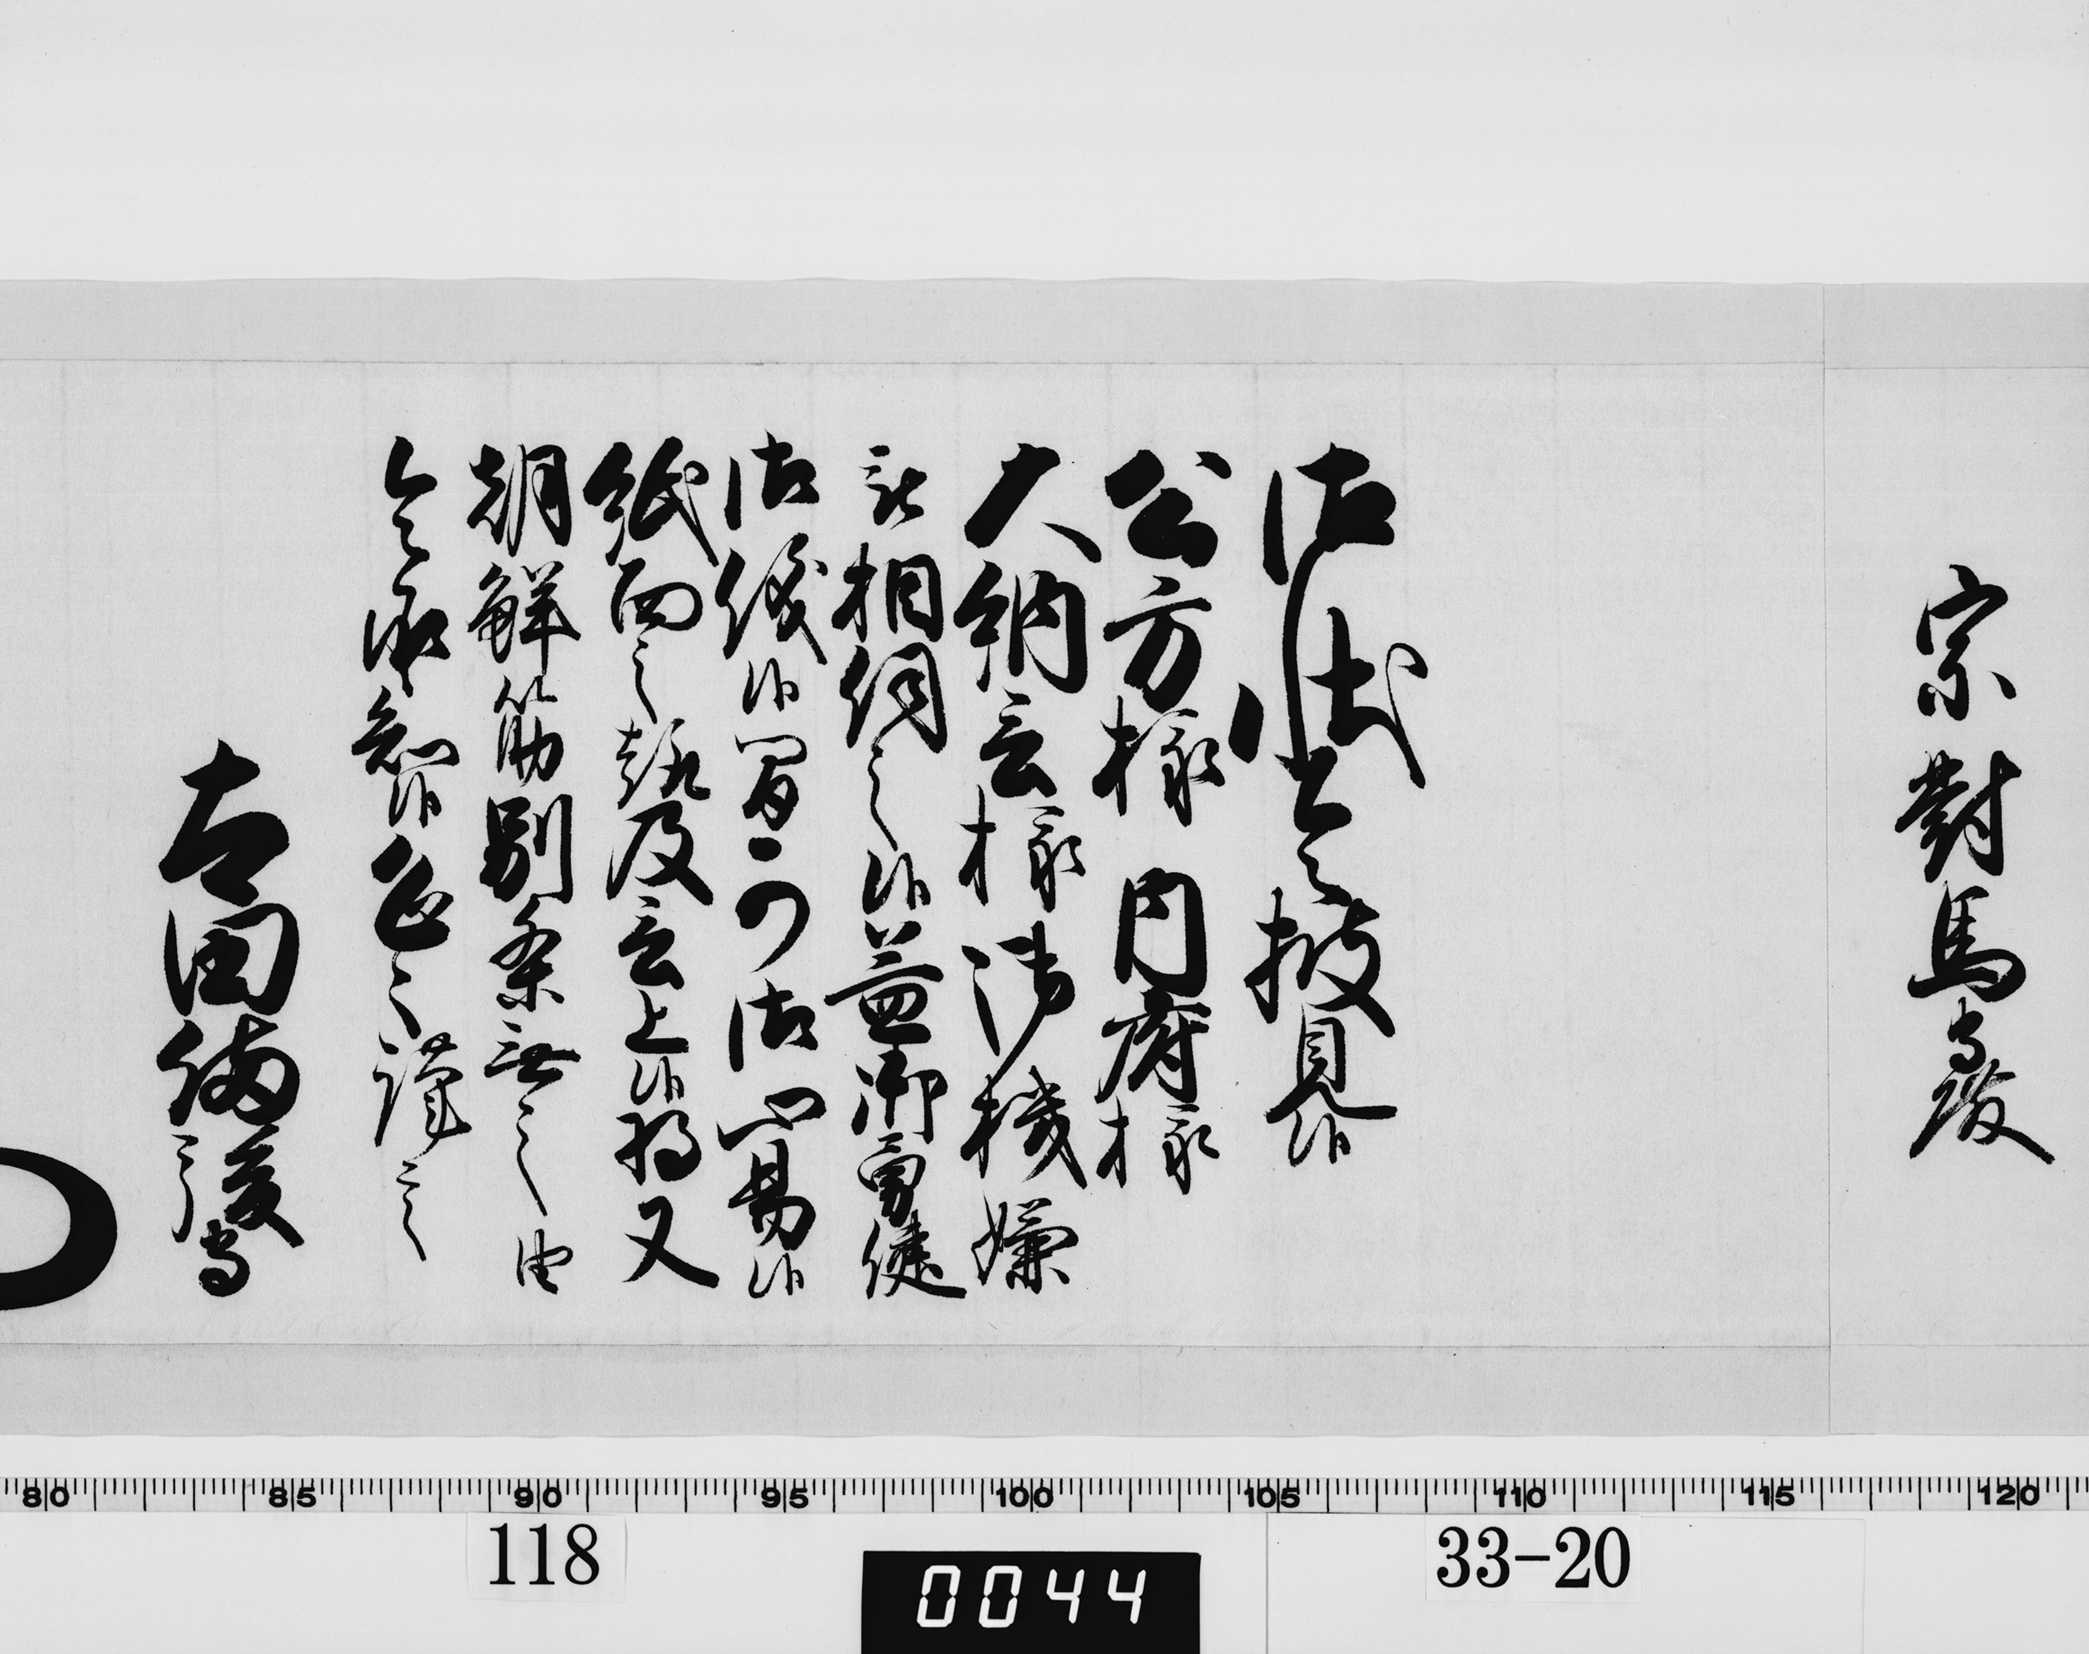 宗對馬守殿
御状令披見候
公方様内府様
大納言様御機嫌
被相伺之候益御勇健
御儀候間可御心易候
紙面之趣及言上候将又
朝鮮筋別条無之由
令承知候恐々謹言
太田備後守
80 85 90 95 100 105 110 115 120
118
0044
33-20